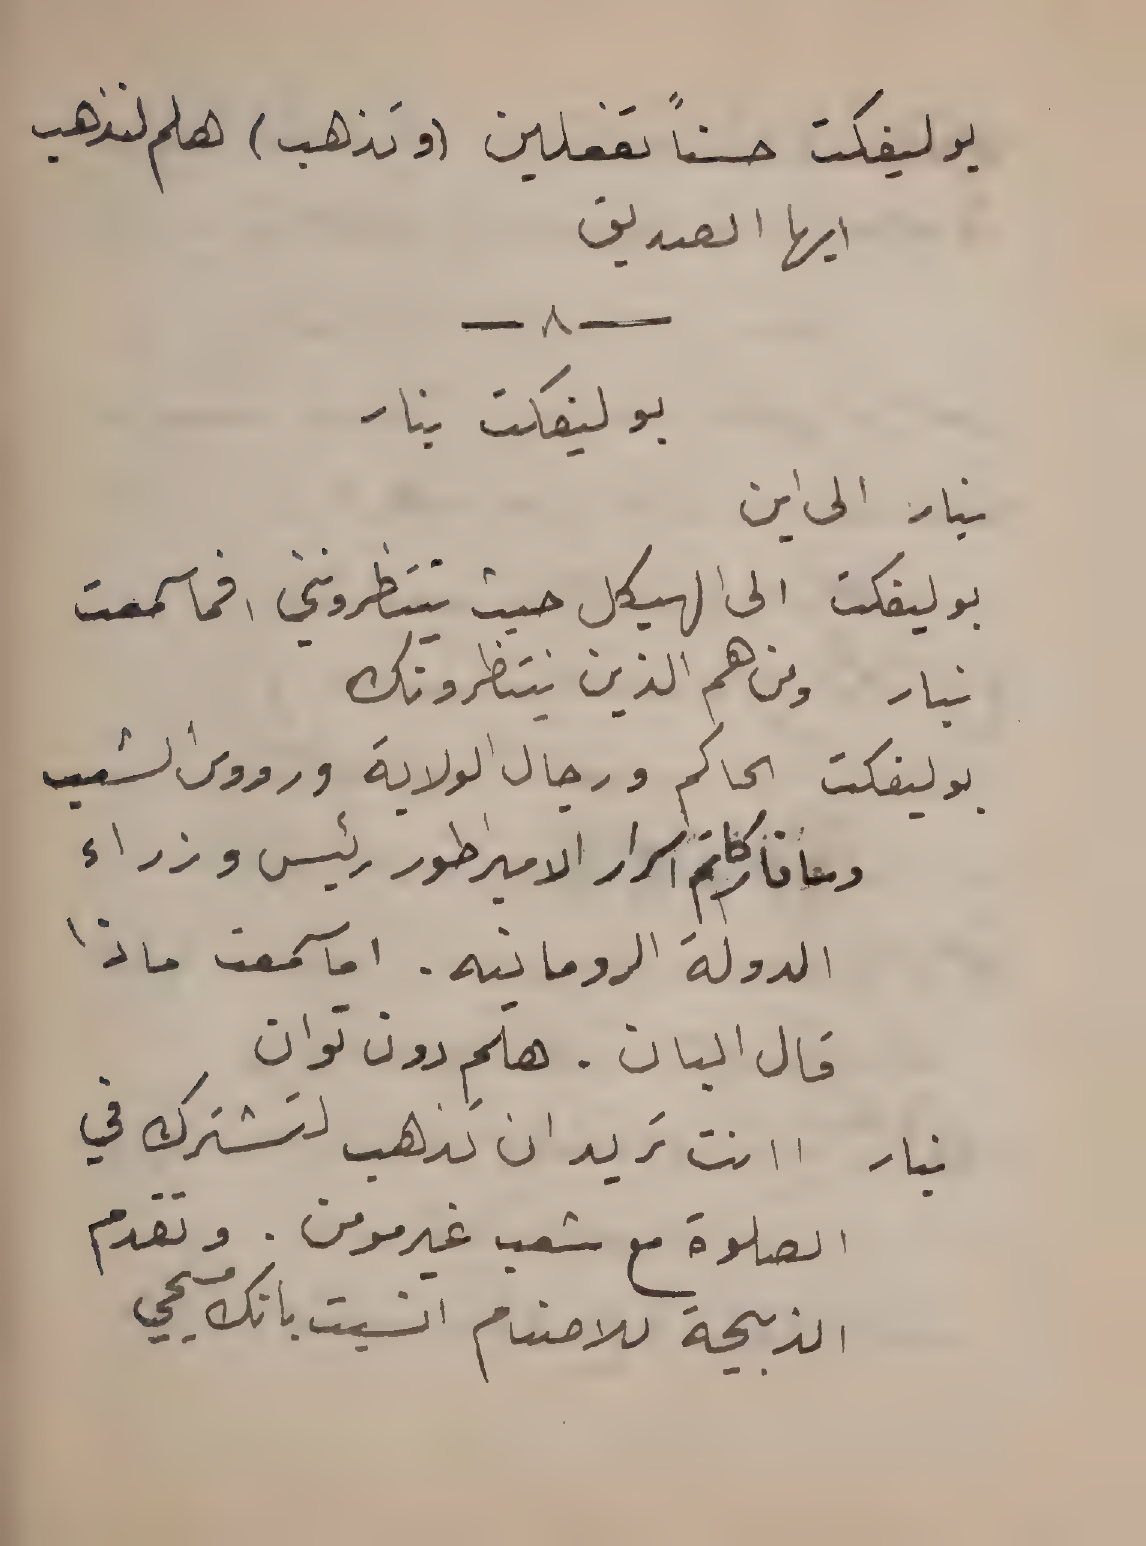 بوليفكت حسناً تفعلين (وتذهب) هلم لنذهب
ايها الصديق
— ٨ —
بوليفكت نيار
نيار الى اين
بوليفكت الى الهيكل حيث ينتظرونني افما سمعت
نيار ومن هم الذين ينتظرونك
بوليفكت الحاكم ورجال الولاية ورووس الشعب
كاتم اسرار الامبراطور رئيس وزراء
الدولة الرومانيه . اما سمعت ماذا
قال البان . هلم دون توان
نيار اانت تريد ان تذهب لتشترك في
الصلوة مع شعب غير مومن . وتقدم
الذبيحة للاصنام انسيت بانك مسيحي